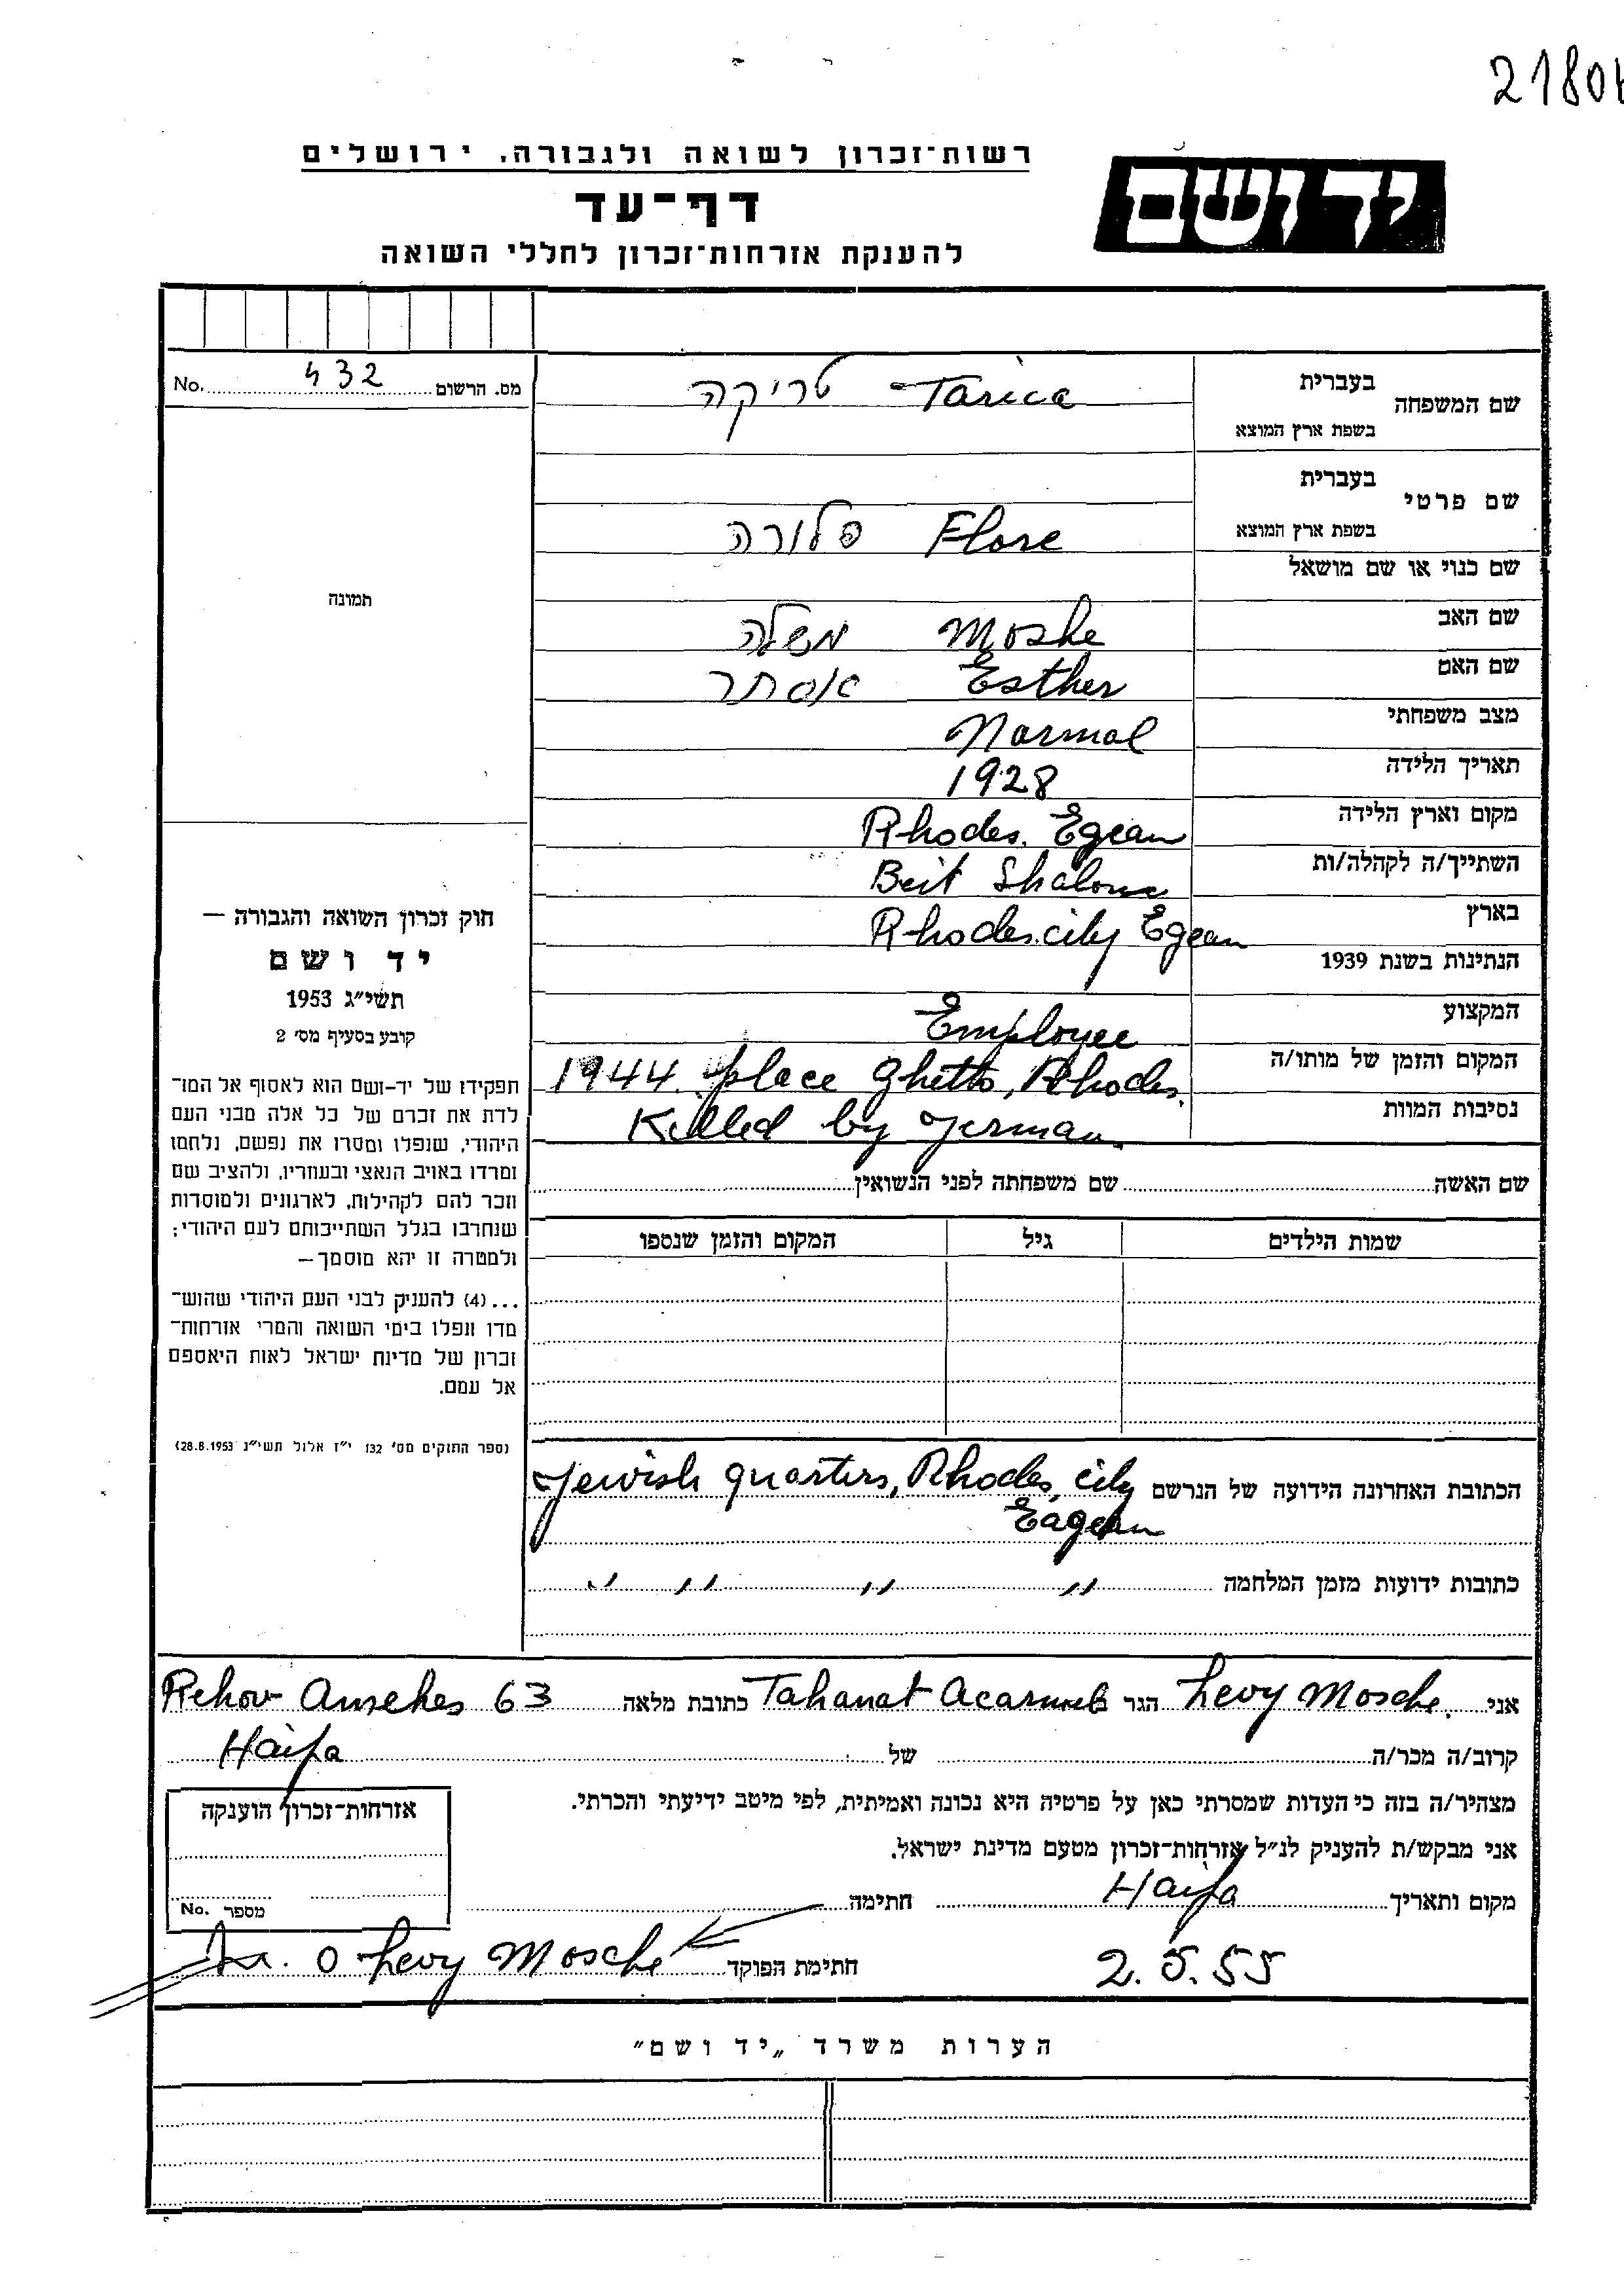 2180
רשות־זכרון לשואה ולגבורה, ירושלים
יד ושם
דף־עד
להענקת אזרחות־זכרון לחללי השואה
מס. הרשום 432 No.
שם המשפחה
בעברית
בשפת ארץ המוצא
Tarica - טריקה
שם פרטי
בעברית
בשפת ארץ המוצא
Flore פלורה
שם כנוי או שם מושאל
שם האב Moshe משה
שם האם Esther אסתר
מצב משפחתי Normal
תאריך הלידה 1928
מקום וארץ הלידה Rhodes. Egean
השתייך/ה לקהלה/ות Beit Shalom
בארץ Rhodes city Egean
הנתינות בשנת 1939
המקצוע Employee
המקום והזמן של מותו/ה 1944 place Ghetto, Rhodes.
נסיבות המוות Killed by german
שם האשה שם משפחתה לפני הנשואין
שמות הילדים גיל המקום והזמן שנספו
תמונה
חוק זכרון השואה והגבורה —
יד ושם
תשי״ג 1953
קובע בסעיף מס׳ 2
תפקידו של יד-ושם הוא לאסוף אל המו־
לדת את זכרם של כל אלה מבני העם
היהודי, שנפלו ומסרו את נפשם, נלחמו
ומרדו באויב הנאצי ובעוזריו, ולהציב שם
וזכר להם לקהילות, לארגונים ולמוסדות
שנחרבו בגלל השתייכותם לעם היהודי;
ולמטרה זו יהא מוסמך —
...(4) להעניק לבני העם היהודי שהוש־
מדו ונפלו בימי השואה והמרי אזרחות־
זכרון של מדינת ישראל לאות היאספם
אל עמם.
(ספר החוקים מס׳ 132 י״ז אלול תשי״ג 28.8.1953)
הכתובת האחרונה הידועה של הנרשם Jewish quarters, Rhodes, city
Eagean
כתובות ידועות מזמן המלחמה " " " "
אני Levy Mosche. הגר ב Tahanat Acarmel כתובת מלאה Rehov 63
קרוב/ה מכר/ה של Haifa
מצהיר/ה בזה כי העדות שמסרתי כאן על פרטיה היא נכונה ואמיתית, לפי מיטב ידיעתי והכרתי.
אני מבקש/ת להעניק לנ״ל אזרחות־זכרון מטעם מדינת ישראל.
מקום ותאריך Haifa חתימה
2.5.55 חתימת הפוקד Levy Mosche
אזרחות־זכרון הוענקה
מספר No.
הערות משרד „יד ושם״